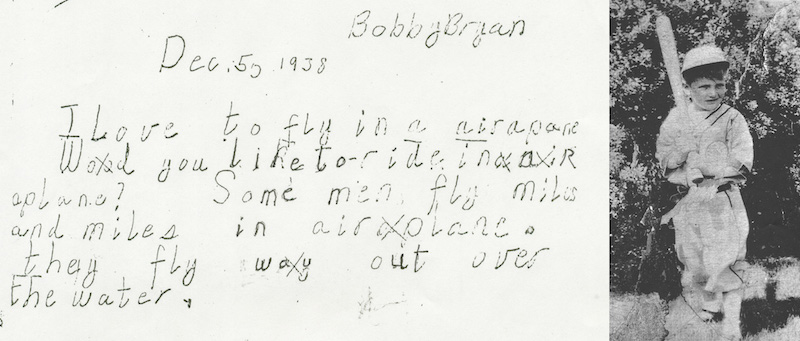 Bobby Bryan
Dec. 5, 1938
I Love to fly in a airapane
Woxd you like to ride in a aiR
aplane? Some men fly miles
and miles in airxplane.
they fly way out over
the water.